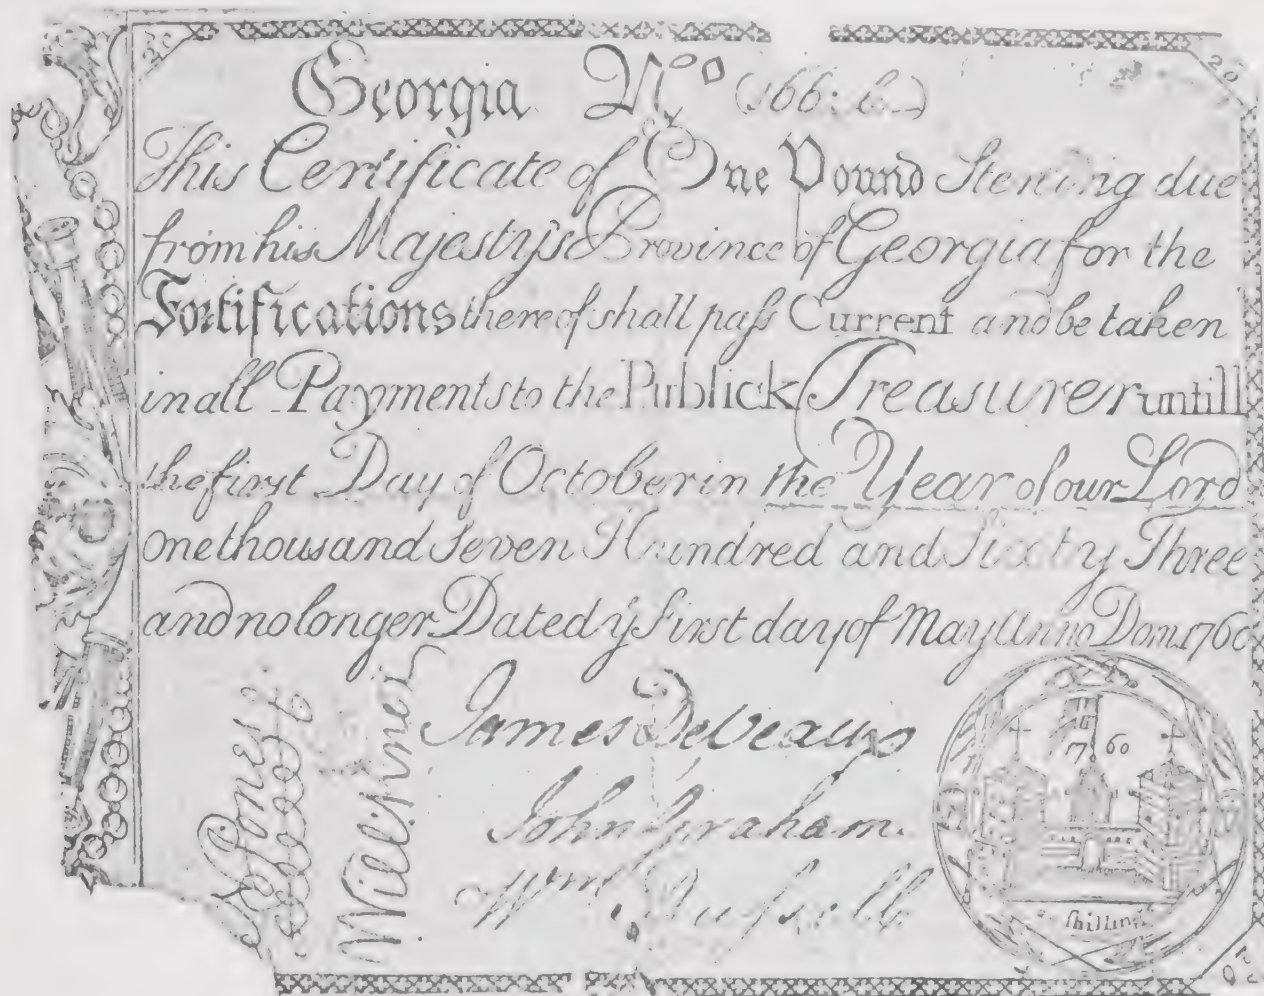 20
Georgia N.o (166
This Certificate of One Pound Sterling due
from his Majesty's Province of Georgia for the
Fortifications thereof shall paſs Current and be taken
in all Payments to the Publick Treasurer untill
the first Day of October in the Year of our Lord
one thousand Seven Hundred and Sixty Three
and no longer Dated ye first day of May Anno Dom 1760
James DeVeaux
John Graham.
Wm. Ruſsell
Jones
Will
1760
ſhilling
20